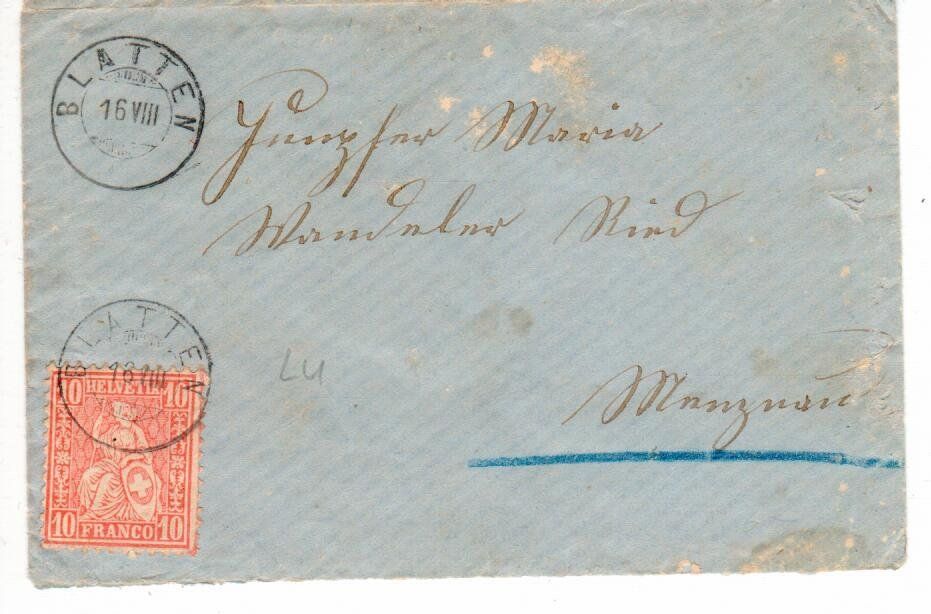 BLATTEN
16 VIII
Jungfer Maria
Wandeler Ried
BLATTEN
16 VIII
LU
Menznau
10 HELVETIA 10
10 FRANCO 10